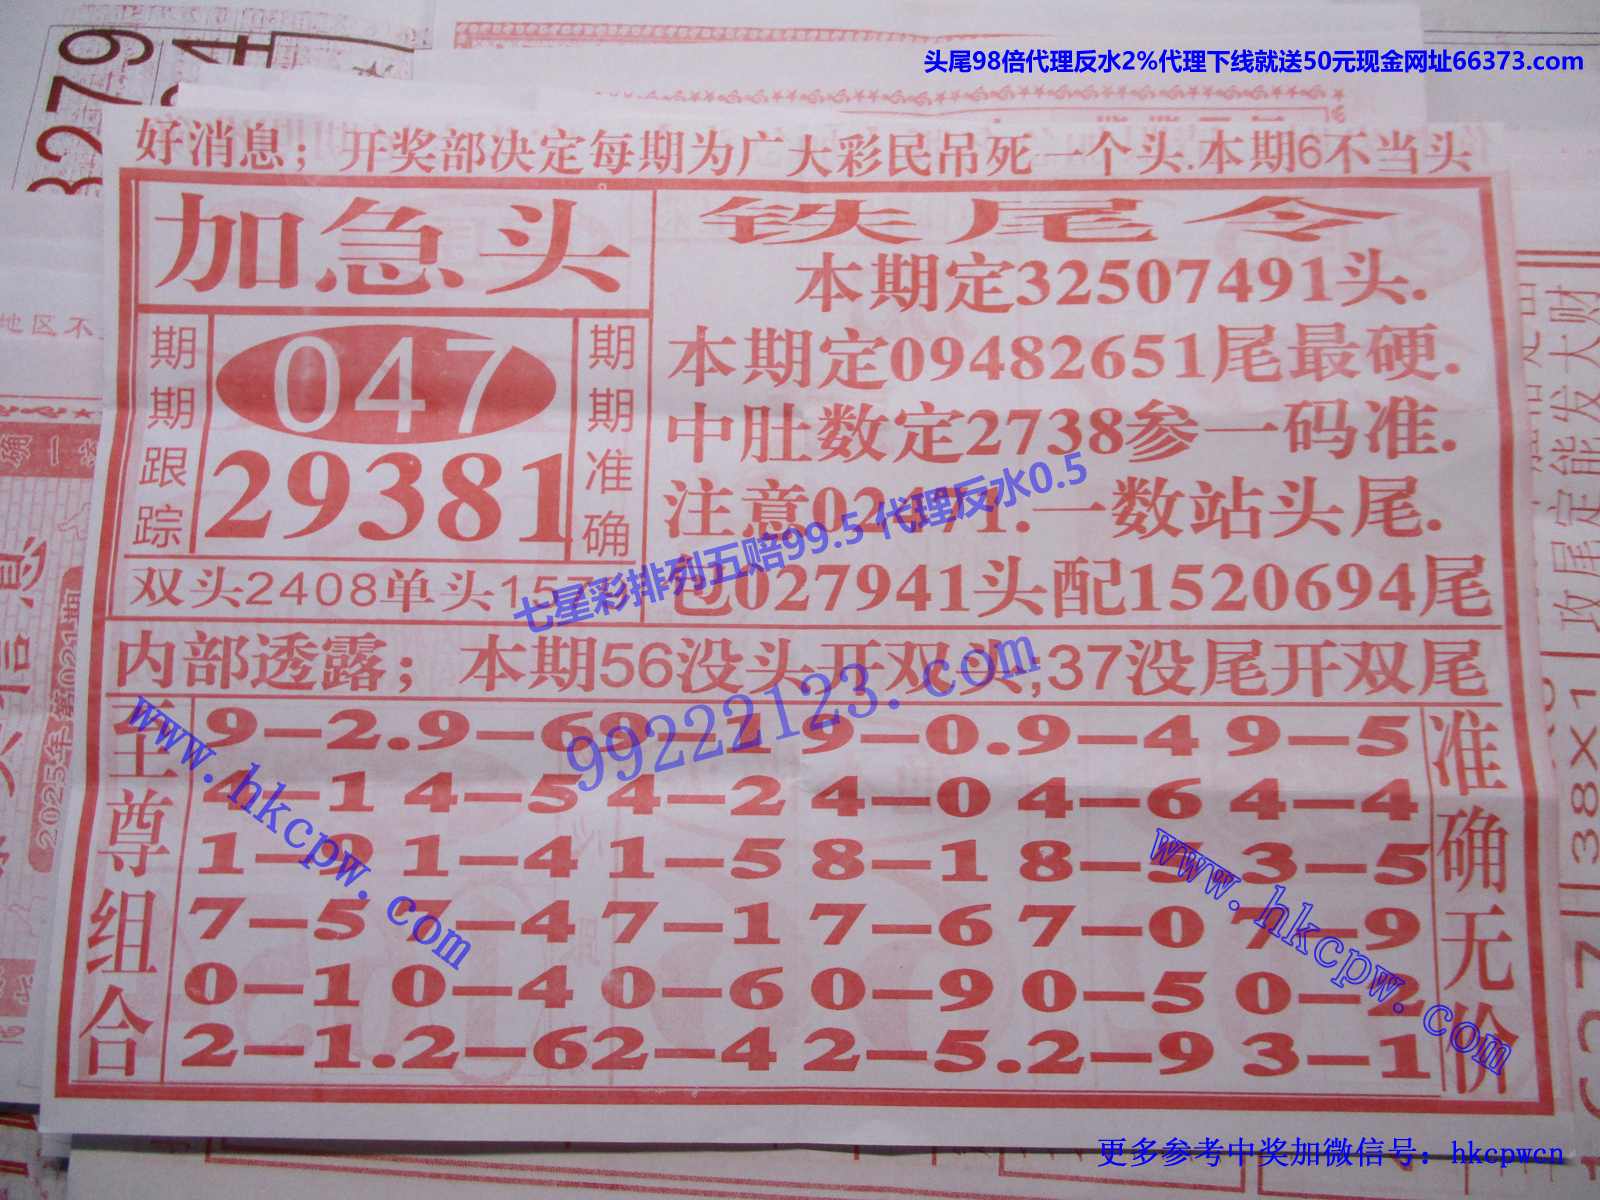 头尾98倍代理反水2%代理下线就送50元现金网址66373.com
3279
好消息；开奖部决定每期为广大彩民吊死一个头.本期6不当头
加急头
期期跟踪
047
29381
期期准确
双头2408单头157
铁尾令
本期定32507491头.
本期定09482651尾最硬.
中肚数定2738参一码准.
注意02471.一数站头尾.
包027941头配1520694尾
七星彩排列五赔99.5代理反水0.5
内部透露；本期56没头开双头;37没尾开双尾
99222123.com
至尊组合
9—2.9—69—1 9—0.9—4 9—5
4—1 4—5 4—2 4—0 4—6 4—4
1—9 1—4 1—5 8—1 8—5 3—5
7—5 7—4 7—1 7—6 7—0 7—9
0—1 0—4 0—6 0—9 0—5 0—2
2—1.2—62—4 2—5.2—9 3—1
准确无价
www.hkcpw.com
www.hkcpw.com
地区不
2025年第021期
攻尾定能发大财
138X1
更多参考中奖加微信号：hkcpwcn